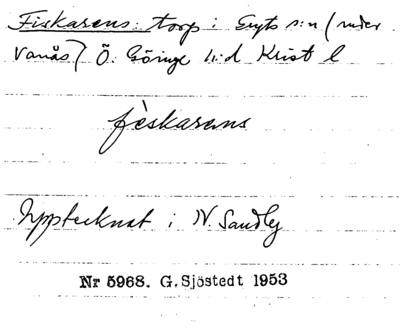 Fiskarens: torp i Gryts s:n (under
Vanås) Ö. Göinge h:d Krist l
fèskarens
Upptecknat i N. Sandby
Nr 5968. G. Sjöstedt 1953